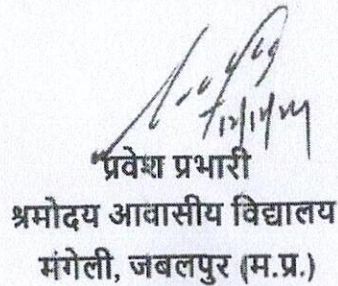 प्रवेश प्रभारी
श्रमोदय आवासीय विद्यालय
मंगेली, जबलपुर (म.प्र.)